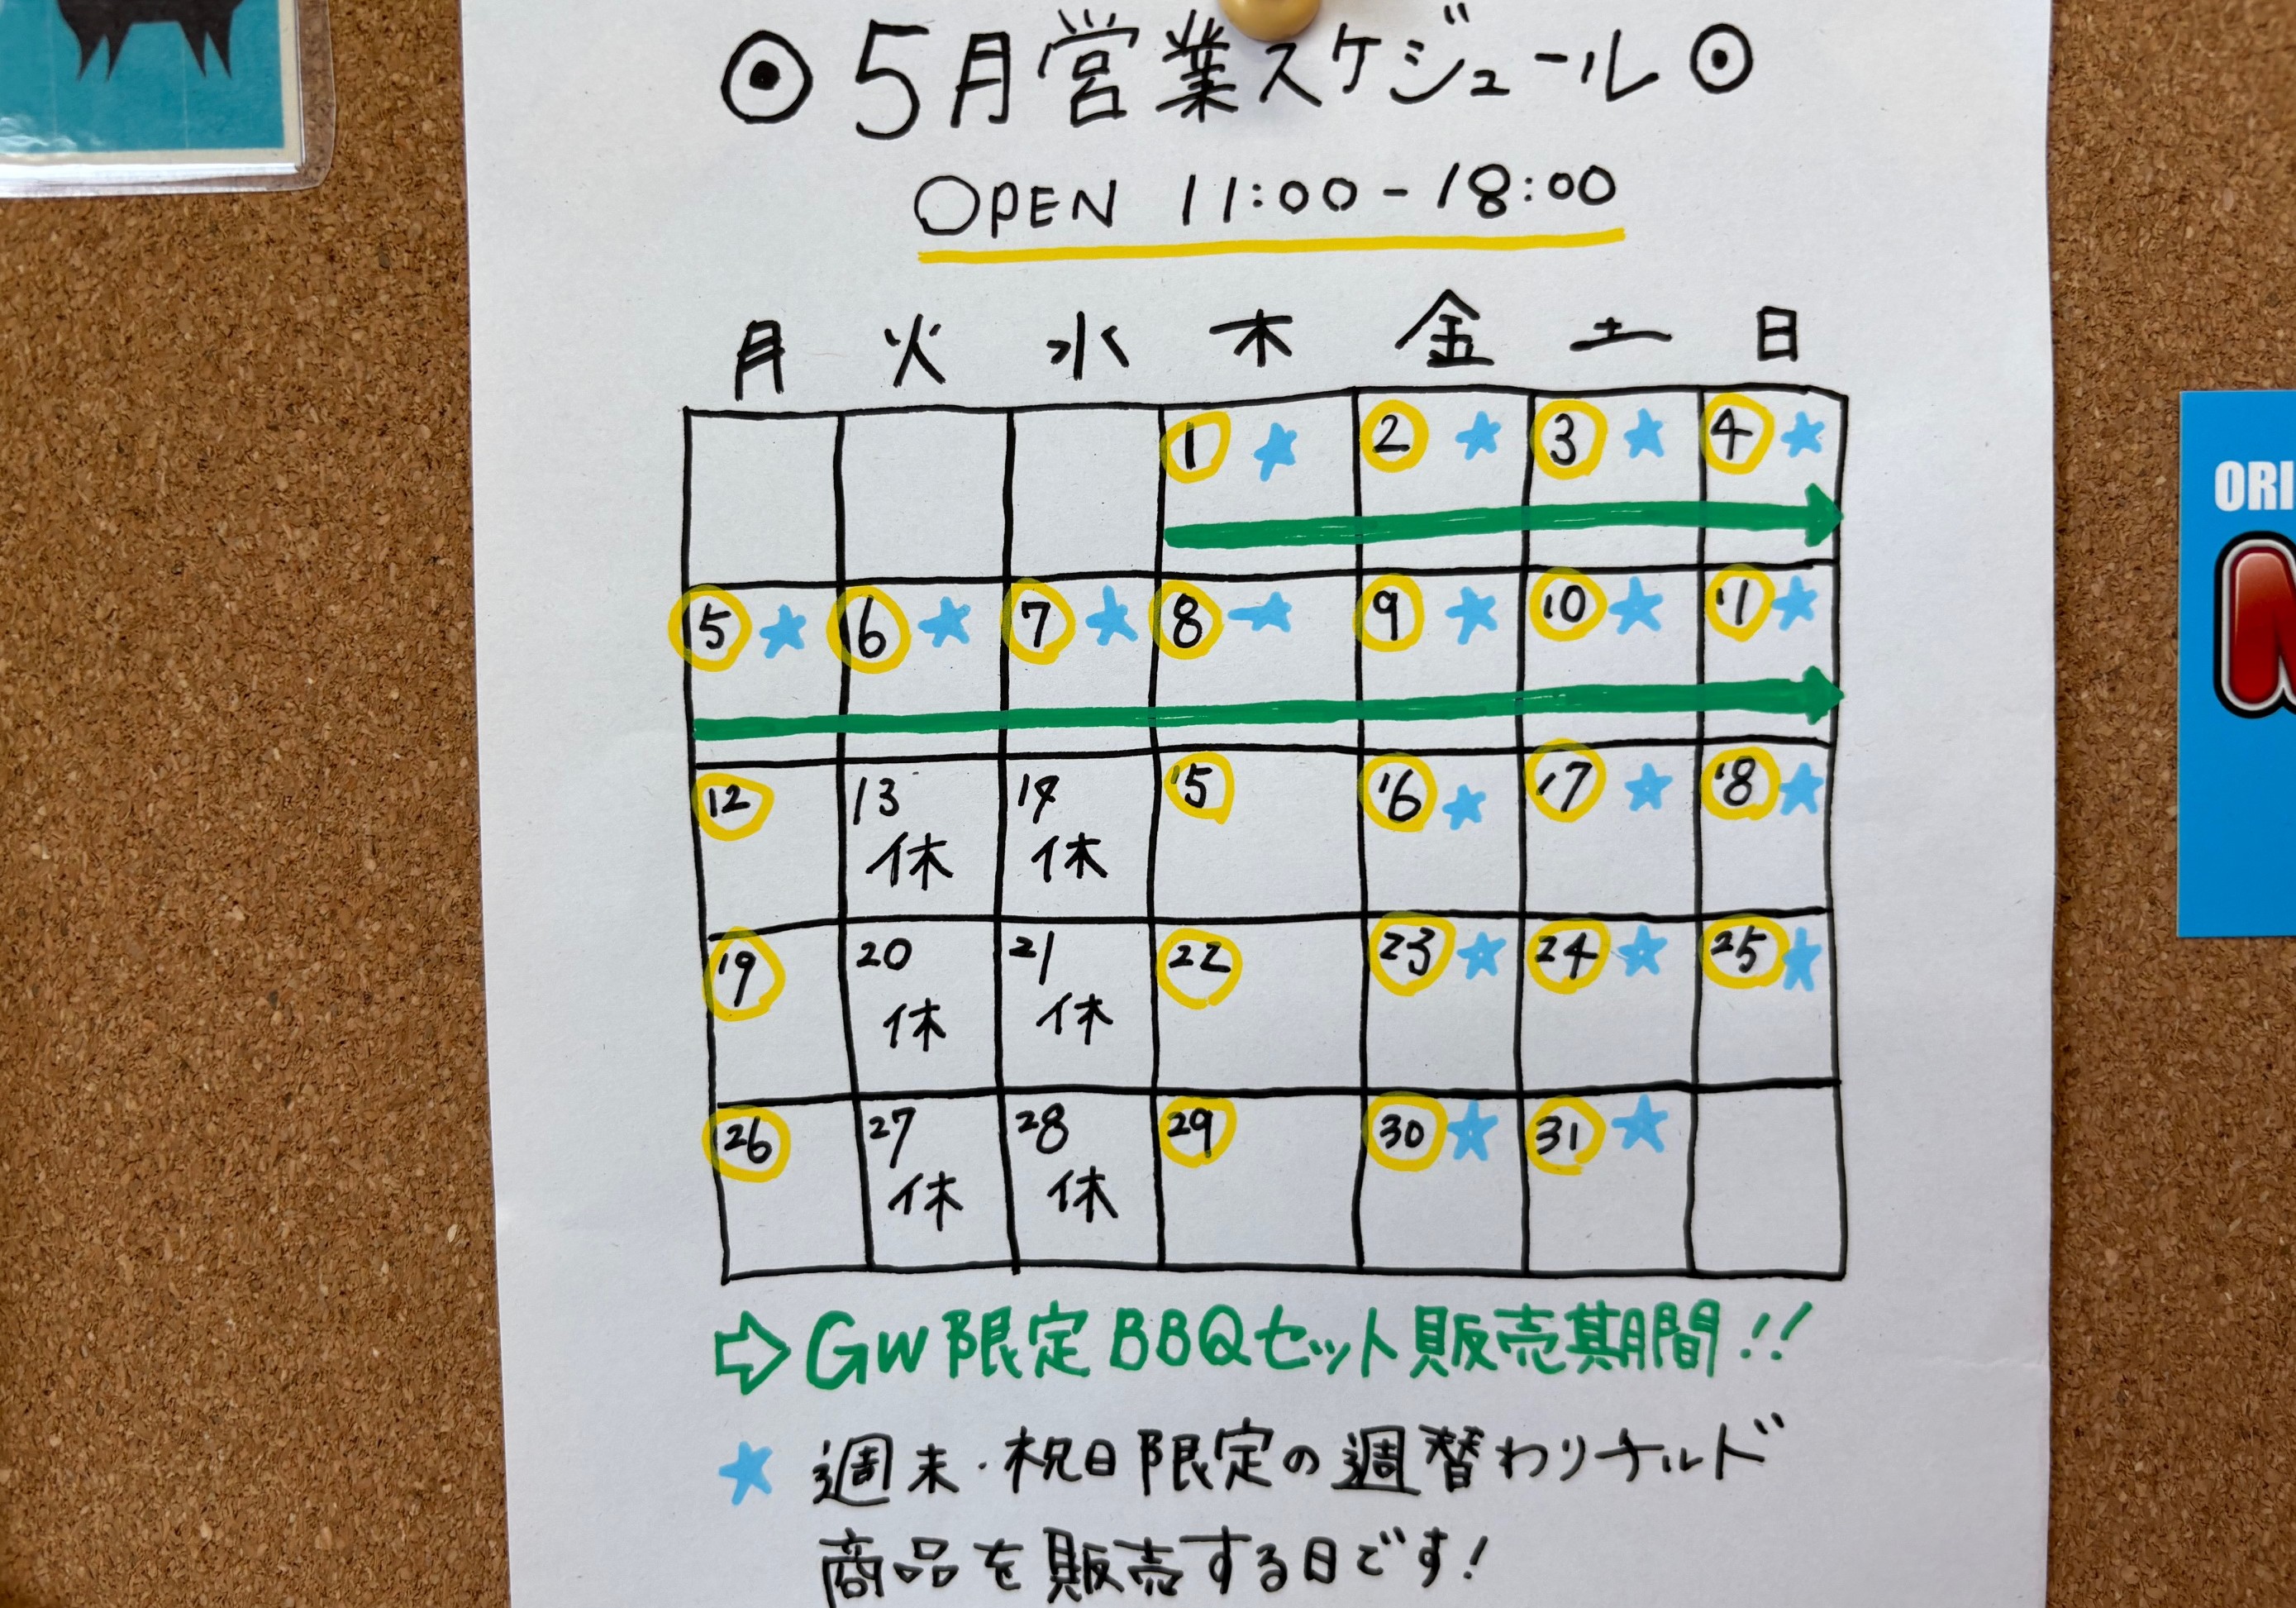 ⦿ 5月営業スケジュール ⦿
OPEN 11:00-18:00
月 火 水 木 金 土 日
1 ★ 2 ★ 3 ★ 4 ★
5 ★ 6 ★ 7 ★ 8 ★ 9 ★ 10 ★ 11 ★
12 13 14 15 16 ★ 17 ★ 18 ★
休 休
19 20 21 22 23 ★ 24 ★ 25 ★
休 休
26 27 28 29 30 ★ 31 ★
休 休
⇨ GW限定BBQセット販売期間!!
★ 週末・祝日限定の週替わりチルド
商品を販売する日です!
ORI